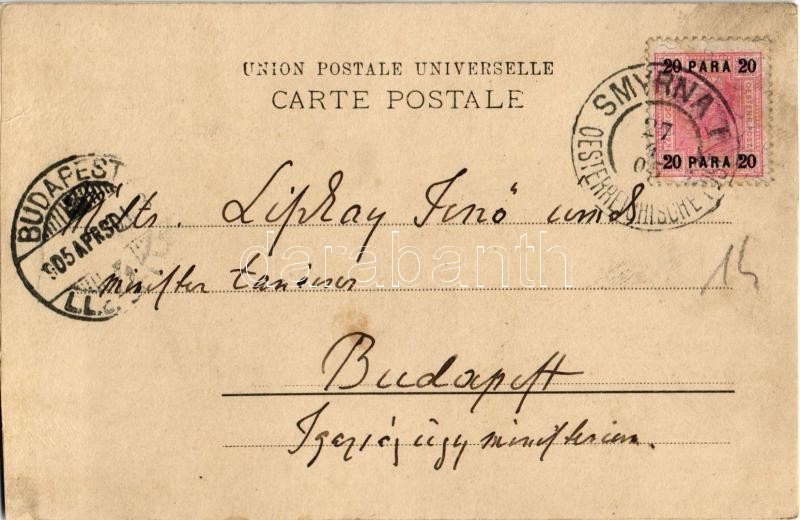 UNION POSTALE UNIVERSELLE
CARTE POSTALE
20 PARA 20
20 PARA 20
SMYRNA
27
OESTERREICHISCHE
BUDAPEST
905 APR 30
Mlts. Lipkay Jenő
minister tanácsos
Budapest
Igazságügyministerium.
14
darabanth